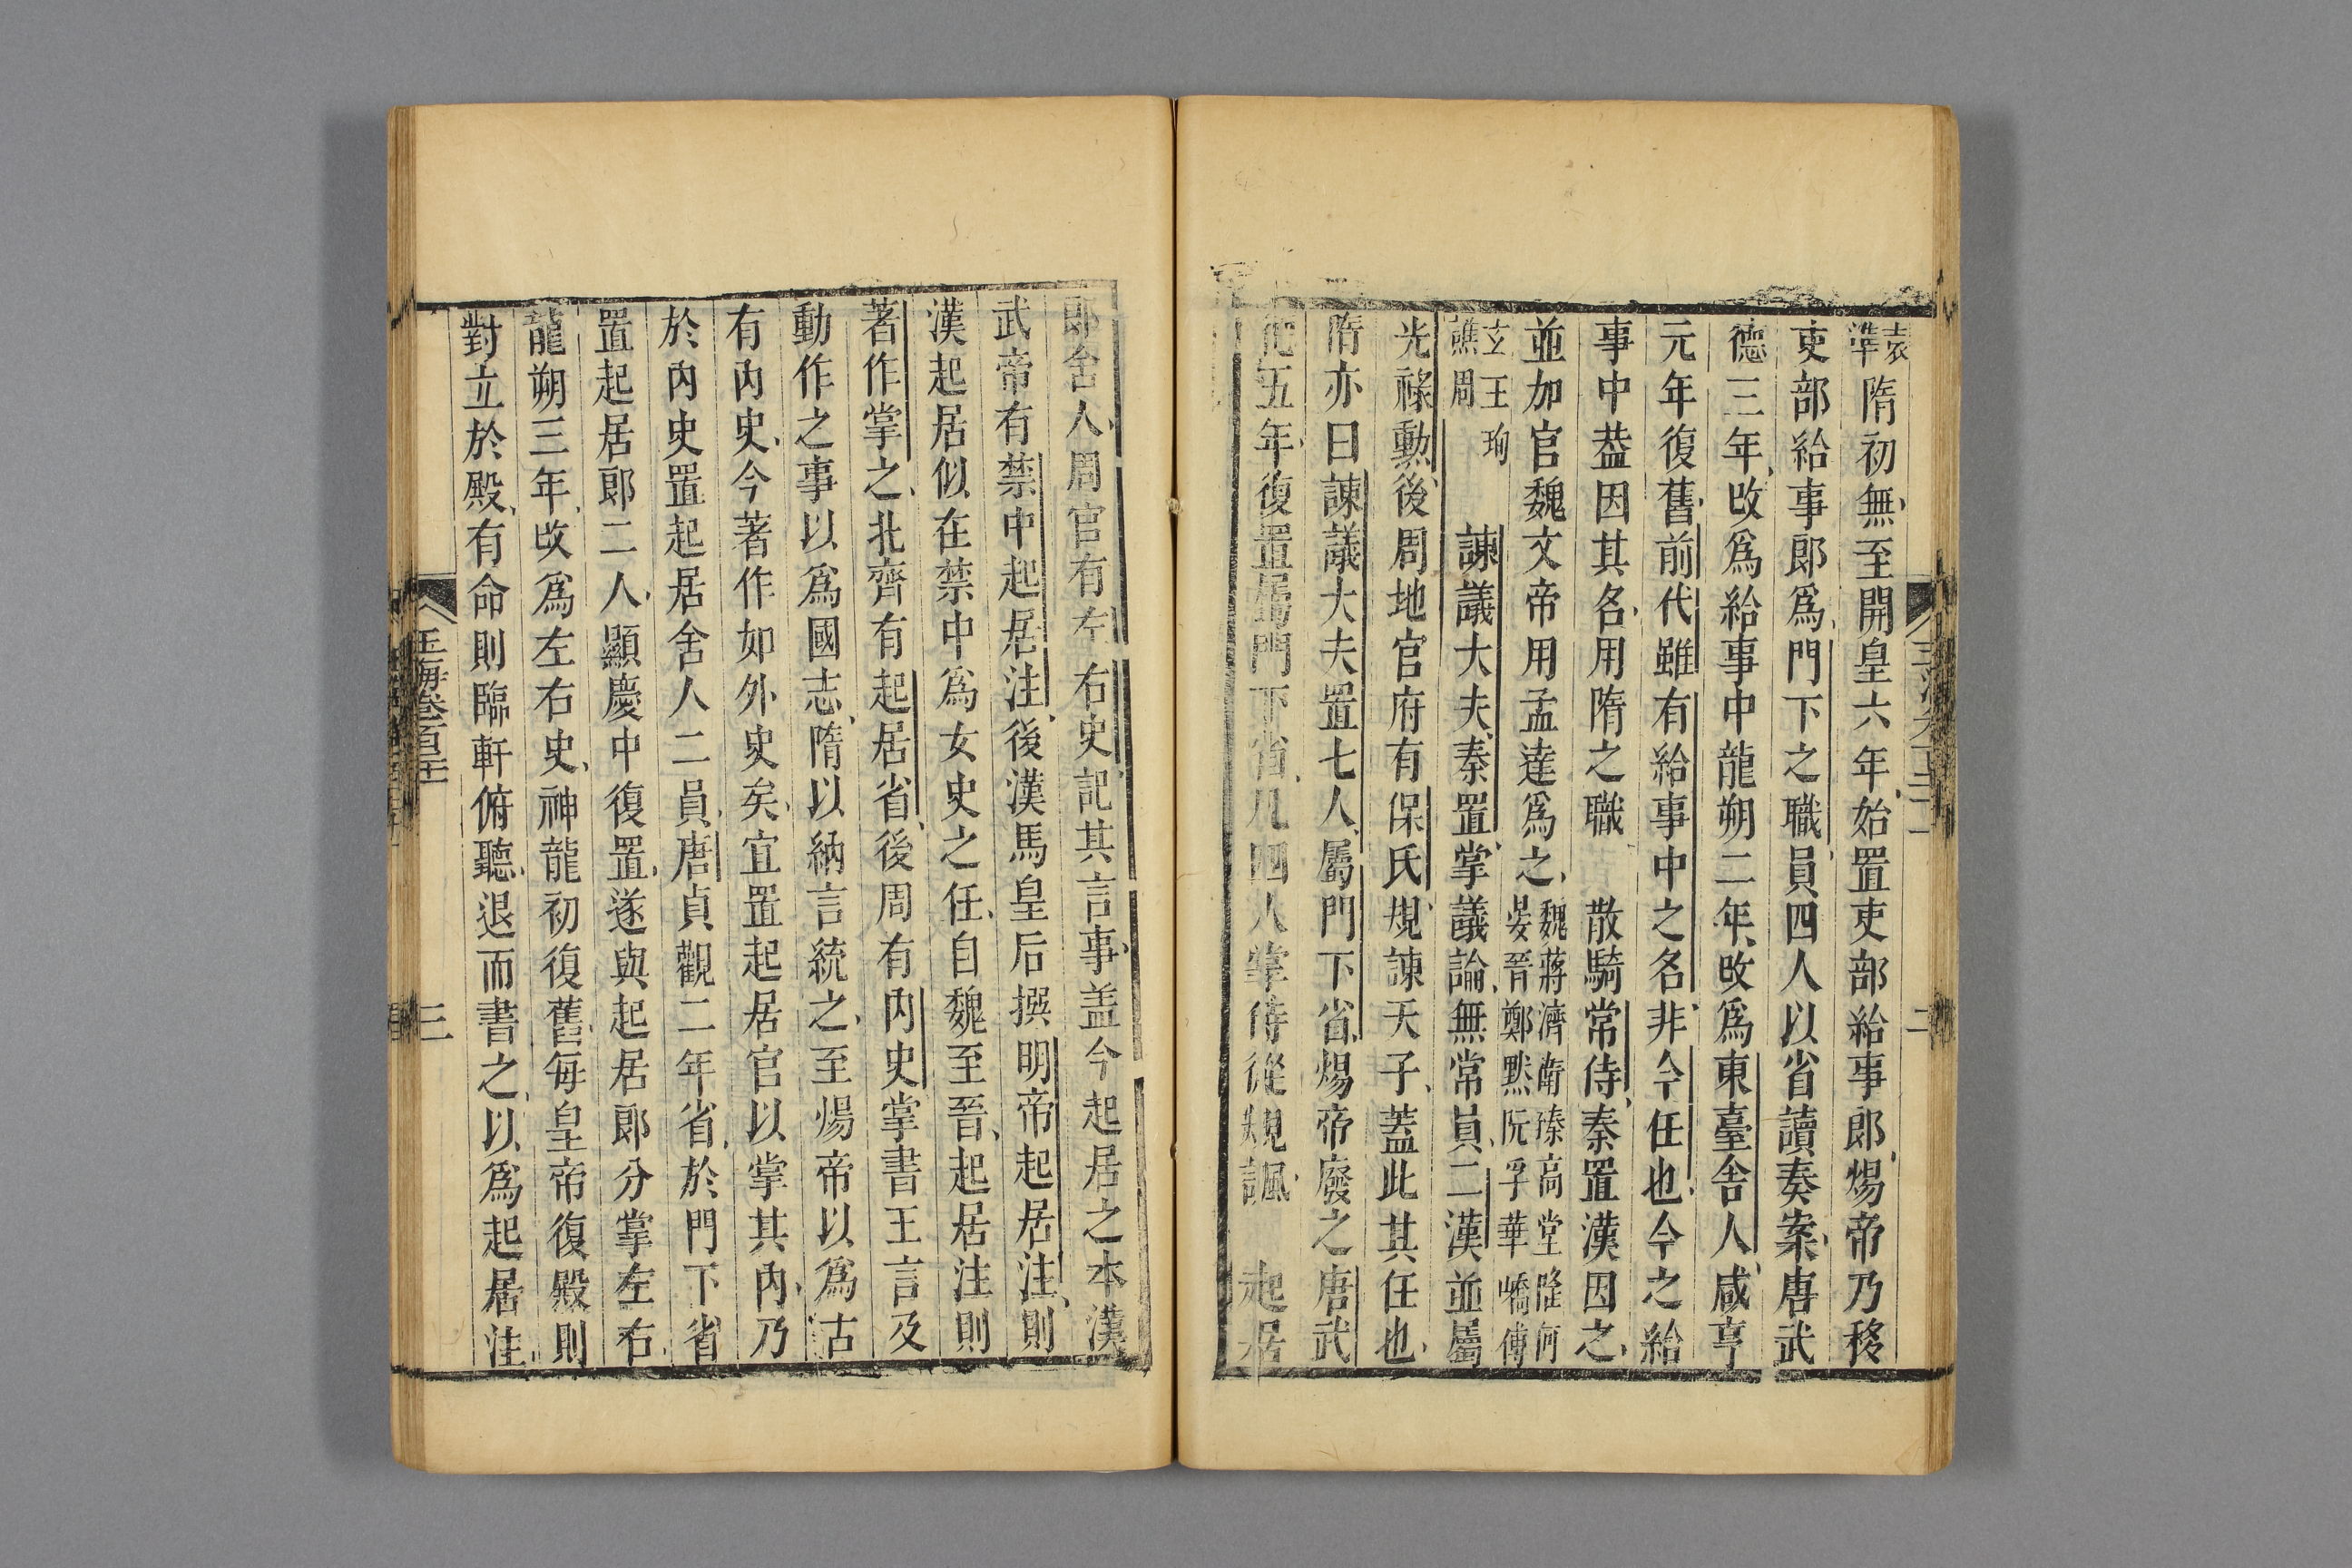 袁準隋初無至開皇六年始置吏部給事郎煬帝乃移
吏部給事郎爲門下之職員四人以省讀奏案唐武
德三年改爲給事中龍朔二年改爲東臺舍人咸亨
元年復舊前代雖有給事中之名非今任也今之給
事中葢因其名用隋之職 散騎常侍秦置漢因之
並加官魏文帝用孟達爲之魏蔣濟衛臻高堂隆何晏晉鄭黙阮孚華嶠傅
玄王珣譙周 諫議大夫秦置掌議論無常員二漢並屬
光祿勲後周地官府有保氏規諫天子蓋此其任也
隋亦曰諫議大夫置七人屬門下省煬帝廢之唐武
五年復置屬門下省凡四人掌侍從規諷 起居
郎舍人周官有左右史記其言事盖今起居之本漢
武帝有禁中起居注後漢馬皇后撰明帝起居注則
漢起居似在禁中爲女史之任自魏至晉起居注則
著作掌之北齊有起居省後周有内史掌書王言及
動作之事以爲國志隋以納言統之至煬帝以爲古
有内史今著作如外史矣宜置起居官以掌其内乃
於内史置起居舍人二員唐貞觀二年省於門下省
置起居郎二人顯慶中復置遂與起居郎分掌左右
龍朔三年改爲左右史神龍初復舊每皇帝復殿則
對立於殿有命則臨軒俯聽退而書之以爲起居注
玉海卷百廿一
三
二